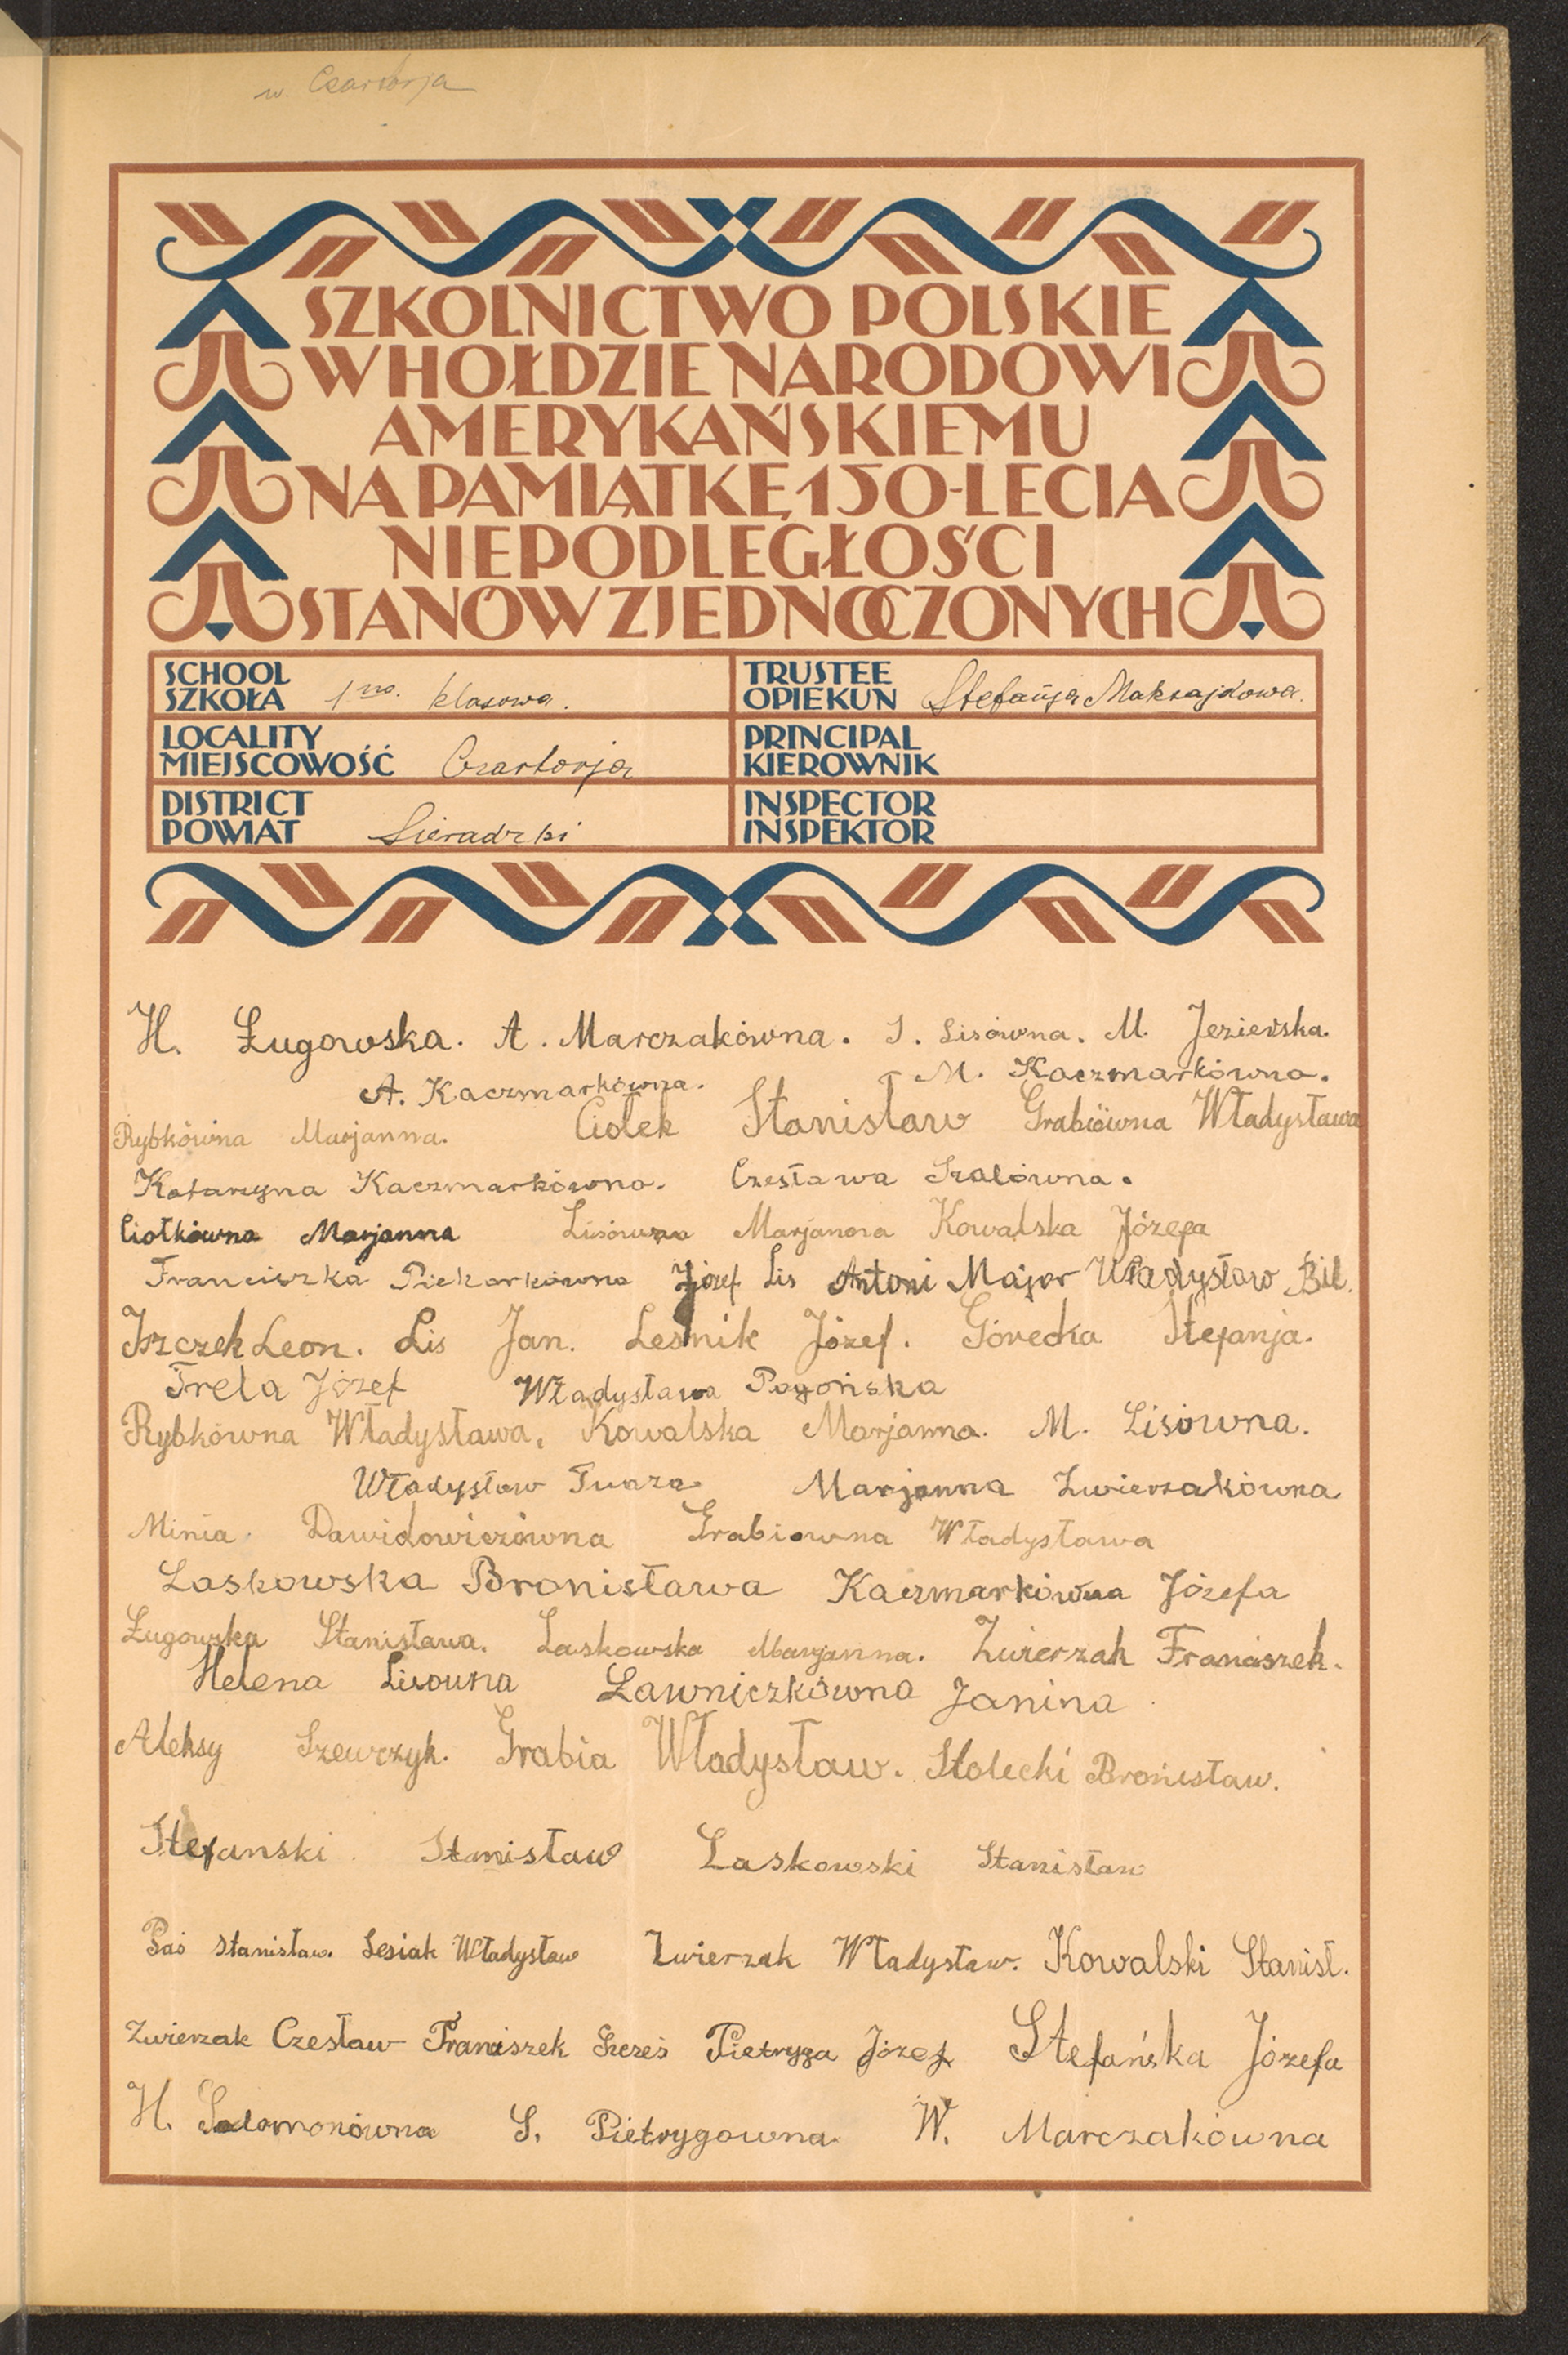 w. Czartorja
SZKOLNICTWO POLSKIE
W HOŁDZIE NARODOWI
AMERYKAŃSKIEMU
NA PAMIĄTKĘ 150-LECIA
NIEPODLEGŁOŚCI
STANÓW ZJEDNOCZONYCH
SCHOOL
SZKOŁA 1no. klasowa.
TRUSTEE
OPIEKUN Stefanja Maksajdowa.
LOCALITY
MIEJSCOWOŚĆ Czartorja
PRINCIPAL
KIEROWNIK
DISTRICT
POWIAT Sieradzki
INSPECTOR
INSPEKTOR
H. Ługowska. A. Marczakówna. S. Lisówna. M. Jezierska.
A. Kaczmarkówna. M. Kaczmarkówna.
Rybkówna Marjanna. Ciołek Stanisław Grabiówna Władysława
Katarzyna Kaczmarkówna. Czesława Szalówna.
Ciołkówna Marjanna Lisówna Marjanna Kowalska Józefa
Franciszka Piekarkówna Józef Lis Antoni Major Władysław Bil.
Leon. Lis Jan. Leśnik Józef. Górecka Stefanja.
Frela Józef Władysława Pogońska
Rybkówna Władysława, Kowalska Marjanna. M. Lisówna.
Władysław Marjanna Zwierzakówna
Minia Dawidowiczówna Grabiowna Władysława
Laskowska Bronisława Kaczmarkówna Józefa
Ługowska Stanisława. Laskowska Marjanna. Zwierzak Franciszek.
Helena Lisowna Ławniczkówna Janina
Aleksy Szewczyk. Grabia Władysław. Stolecki Bronisław.
Stefanski Stanisław Laskowski Stanisław
Paś Stanisław. Lesiak Władysław Zwierzak Władysław. Kowalski Stanisł.
Zwierzak Czesław Franciszek Szcześ Pietryga Józef Stefańska Józefa
H. Salomonówna S. Pietrygowna W. Marczakówna